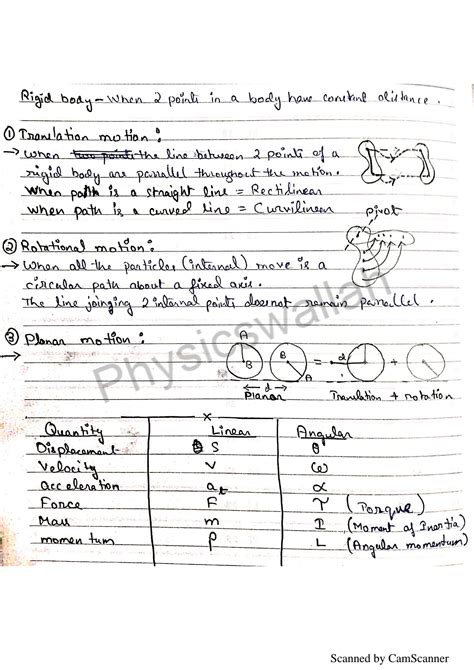 Rigid body - When 2 points in a body have constant distance.
① Translation motion :
→ When two points the line between 2 points of a
rigid body are parallel throughout the motion.
When path is a straight line = Rectilinear
When path is a curved line = Curvilinear
pivot
② Rotational motion :
→ When all the particles (internal) move is a
circular path about a fixed axis.
The line joinging 2 internal points doesnot remain parallel.
③ Planar motion :
→
A
B B = d +
A
d
Planar Translation + rotation
x
Quantity Linear Angular
Displacement S θ
Velocity v ω
acceleration at α
Force F τ (Torque)
Mass m I (Moment of Inertia)
momentum p L (Angular momentum)
Physicswallah
Scanned by CamScanner